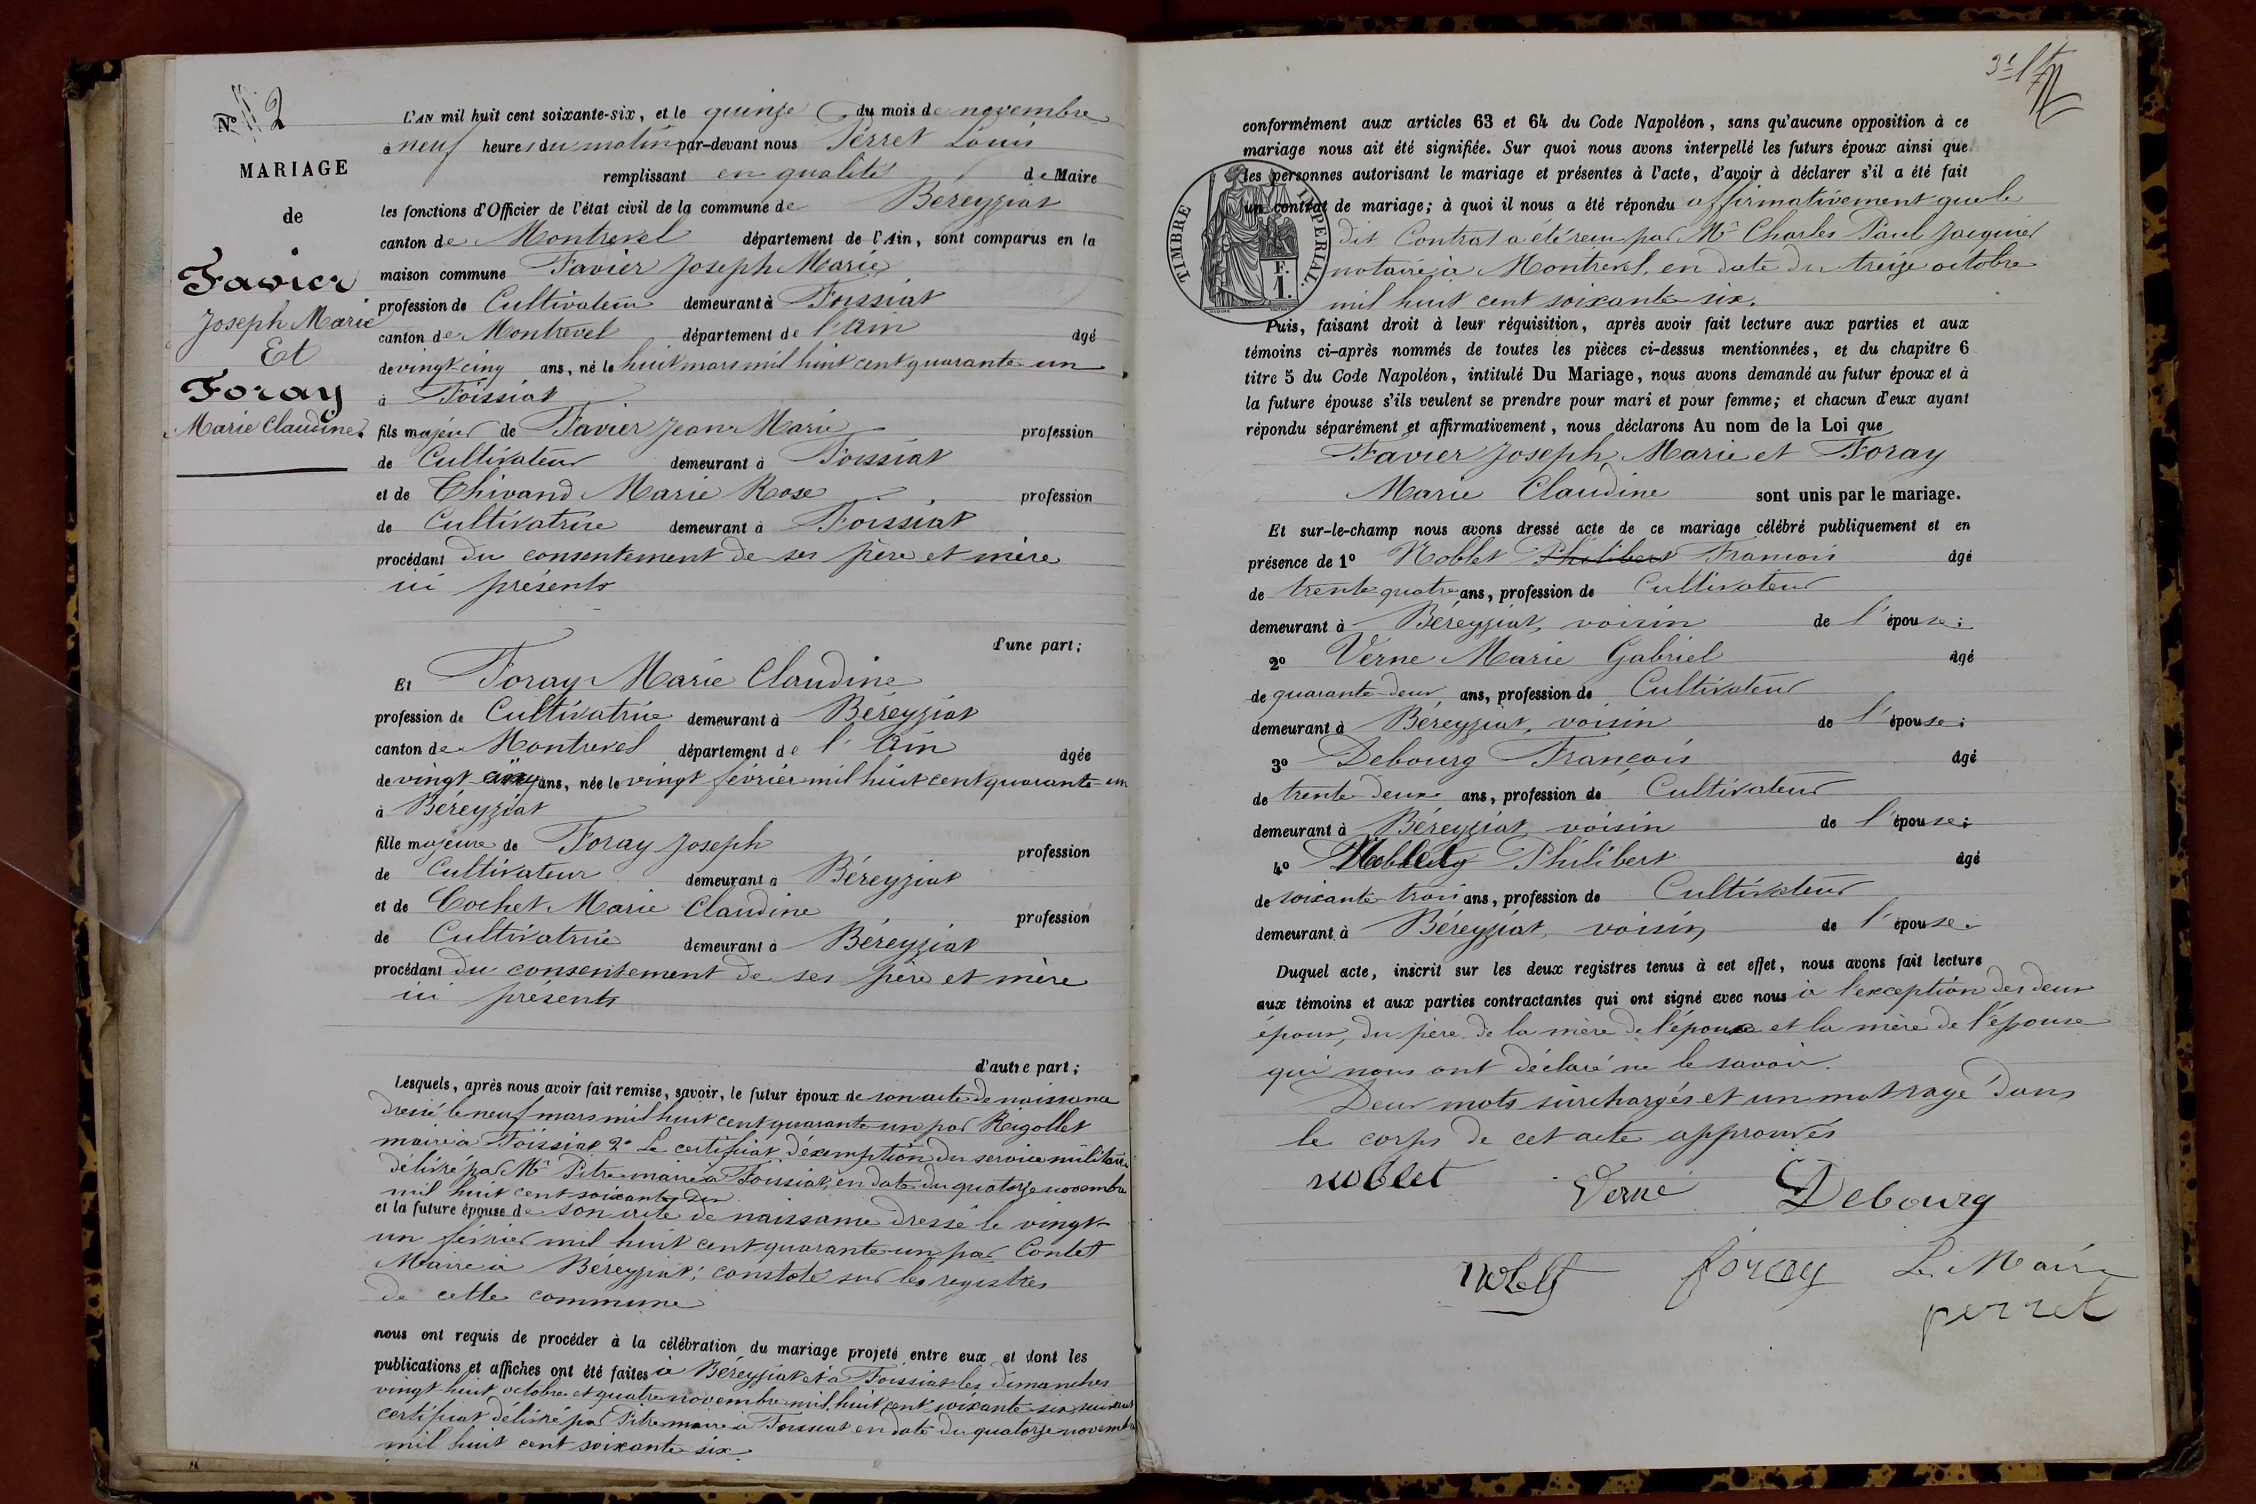 N.º 2
MARIAGE
de
Favier
Joseph Marie
Et
Foray
Marie Claudine.
L'AN mil huit cent soixante-six, et le quinze du mois de novembre
à neuf heures du matin par-devant nous Perret Louis
remplissant en qualité de Maire
les fonctions d'Officier de l'état civil de la commune de Béreyziat
canton de Montrevel département de l'Ain, sont comparus en la
maison commune Favier Joseph Marie
profession de Cultivateur demeurant à Foissiat
canton de Montrevel département de l'Ain âgé
de vingt cinq ans, né le huit mars mil huit cent quarante un
à Foissiat
fils majeur de Favier Jean Marie profession
de Cultivateur demeurant à Foissiat
et de Thivand Marie Rose profession
de Cultivatrice demeurant à Foissiat
procédant du consentement de ses père et mère
ici présents
d'une part;
Et Foray Marie Claudine
profession de Cultivatrice demeurant à Béreyziat
canton de Montrevel département de l'Ain âgée
de vingt cinq ans, née le vingt février mil huit cent quarante-un
à Béreyziat
fille majeure de Foray Joseph profession
de Cultivateur demeurant à Béreyziat
et de Cochet Marie Claudine profession
de Cultivatrice demeurant à Béreyziat
procédant du consentement de ses père et mère
ici présents
d'autre part;
Lesquels, après nous avoir fait remise, savoir, le futur époux de son acte de naissance
dressé le neuf mars mil huit cent quarante un par Rigollet
maire à Foissiat 2º Le certificat d'exemption du service militaire
délivré par Mr Pitre maire à Foissiat, en date du quatorze novembre
mil huit cent soixante six
et la future épouse de son acte de naissance dressé le vingt
un février mil huit cent quarante un par Contet
Maire à Béreyziat; constaté sur les registres
de cette commune
nous ont requis de procéder à la célébration du mariage projeté entre eux et dont les
publications et affiches ont été faites à Béreyziat et à Foissiat les dimanches
vingt huit octobre et quatre novembre mil huit cent soixante six suivant
certificat délivré par Pitre maire à Foissiat en date du quatorze novembre
mil huit cent soixante six.
conformément aux articles 63 et 64 du Code Napoléon, sans qu'aucune opposition à ce
mariage nous ait été signifiée. Sur quoi nous avons interpellé les futurs époux ainsi que
les personnes autorisant le mariage et présentes à l'acte, d'avoir à déclarer s'il a été fait
un contrat de mariage; à quoi il nous a été répondu affirmativement que le
dit Contrat a été reçu par Mr Charles Paul Jacquier
notaire à Montrevel, en date du treize octobre
mil huit cent soixante six.
TIMBRE IMPERIAL.
F.
1.
Puis, faisant droit à leur réquisition, après avoir fait lecture aux parties et aux
témoins ci-après nommés de toutes les pièces ci-dessus mentionnées, et du chapitre 6
titre 5 du Code Napoléon, intitulé Du Mariage, nous avons demandé au futur époux et à
la future épouse s'ils veulent se prendre pour mari et pour femme; et chacun d'eux ayant
répondu séparément et affirmativement, nous déclarons Au nom de la Loi que
Favier Joseph Marie et Foray
Marie Claudine sont unis par le mariage.
Et sur-le-champ nous avons dressé acte de ce mariage célébré publiquement et en
présence de 1º Noblet Philibert Francois âgé
de trente quatre ans, profession de Cultivateur
demeurant à Béreyziat, voisin de l'épouse;
2º Verne Marie Gabriel âgé
de quarante-deux ans, profession de Cultivateur
demeurant à Béreyziat, voisin de l'épouse;
3º Debourg François âgé
de trente-deux ans, profession de Cultivateur
demeurant à Béreyziat, voisin de l'épouse;
4º Noblet Philibert âgé
de soixante-trois ans, profession de Cultivateur
demeurant à Béreyziat, voisin de l'épouse.
Duquel acte, inscrit sur les deux registres tenus à cet effet, nous avons fait lecture
aux témoins et aux parties contractantes qui ont signé avec nous à l'exception des deux
époux, du père de la mère de l'époux et la mère de l'épouse
qui nous ont déclaré ne le savoir.
Deux mots surchargés et un mot rayé dans
le corps de cet acte approuvés
noblet Verne Debourg
foray Le Maire
perret